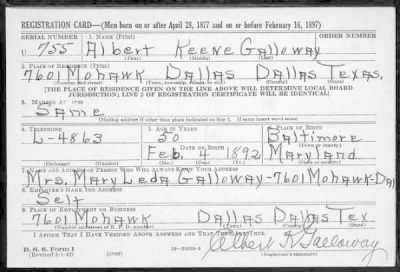 REGISTRATION CARD—(Men born on or after April 28, 1877 and on or before February 16, 1897)
SERIAL NUMBER 1. NAME (Print) ORDER NUMBER
U 755 Albert Keene Galloway
2. PLACE OF RESIDENCE (Print)
7601 Mohawk Dallas Dallas Texas.
(Number and street) (Town, township, village, or city) (County) (State)
[THE PLACE OF RESIDENCE GIVEN ON THE LINE ABOVE WILL DETERMINE LOCAL BOARD
JURISDICTION; LINE 2 OF REGISTRATION CERTIFICATE WILL BE IDENTICAL]
3. MAILING ADDRESS
Same
[Mailing address if other than place indicated on line 2. If same insert word same]
4. TELEPHONE 5. AGE IN YEARS 6. PLACE OF BIRTH
L-4863 50 Baltimore
DATE OF BIRTH (Town or county)
Feb. 4 1892 Maryland
(Exchange) (Number) (Mo.) (Day) (Yr.) (State or country)
7. NAME AND ADDRESS OF PERSON WHO WILL ALWAYS KNOW YOUR ADDRESS
Mrs. Mary Leda Galloway-7601 Mohawk-Dal
8. EMPLOYER'S NAME AND ADDRESS
Self
9. PLACE OF EMPLOYMENT OR BUSINESS
7601 Mohawk Dallas Dallas Tex.
(Number and street or R. F. D. number) (Town) (County) (State)
I AFFIRM THAT I HAVE VERIFIED ABOVE ANSWERS AND THAT THEY ARE TRUE.
D. S. S. Form 1
(Revised 4-1-42) (over) Albert K Galloway
(Registrant's signature)